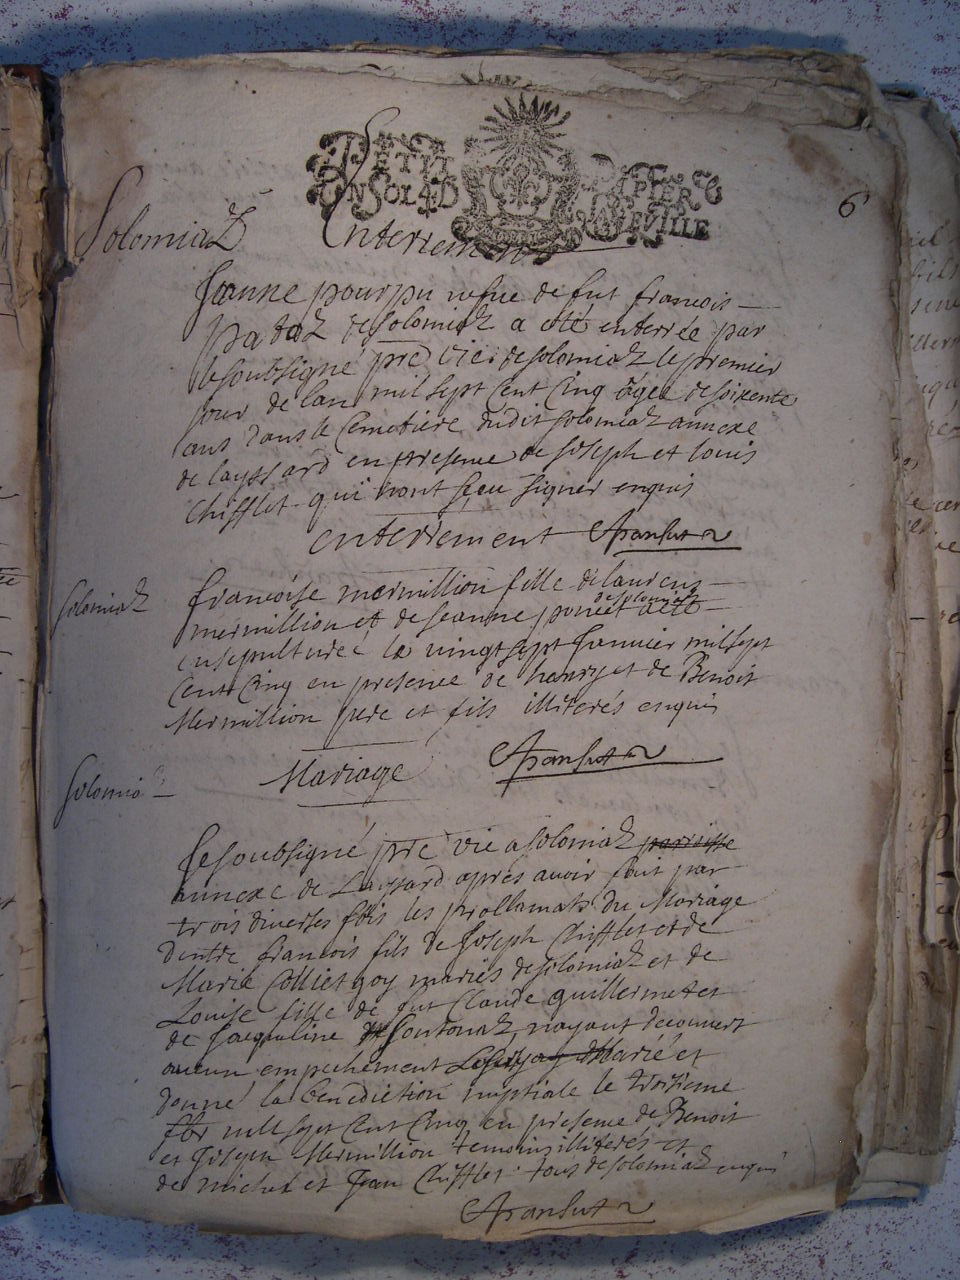 PETIT PAPIER
UN SOL 4 D
6
Solomiaz Enterrement
Jeanne pourpu vefue de fut francois
pataz de solomiaz a eté enterrée par
le soubsigné pre vic. de solomiaz le premier
jour de lan mil sept cent cinq âgee de soixente
ans dans le Cemetière dudit solomiaz annexe
de layssard en presense de Joseph et louis
Chifflet qui nont sceu signer enquis
enterrement
Solomiaz
francoise mermillion fille de laurens
de solomiaz
mermillion et de Jeanne poncet a eté
ensepulturée le vingt sept Januier mil sept
Cent Cinq en presence de henry et de Benoit
Mermillion pere et fils illiterés enquis
Mariage
Solomia
Je soubsigné pre vic a solomiaz parroisse
annexe de Layssard apres auoir fait par
trois diuerses fois les proclamats du Mariage
dentre francois fils de Joseph Chifflet et de
Marie Colliet goy mariés de solomiaz et de
Louise fille de fut Claude guillermet et
de Jacqueline nayant decouuert
aucun empechement Marié et
donné la benediction nuptiale le troisieme
fbr mil sept cent cinq en presense de Benoit
et Joseph Mermillion temoins illiterés et
de michel et Jean Chifflet tous de solomiaz enquis